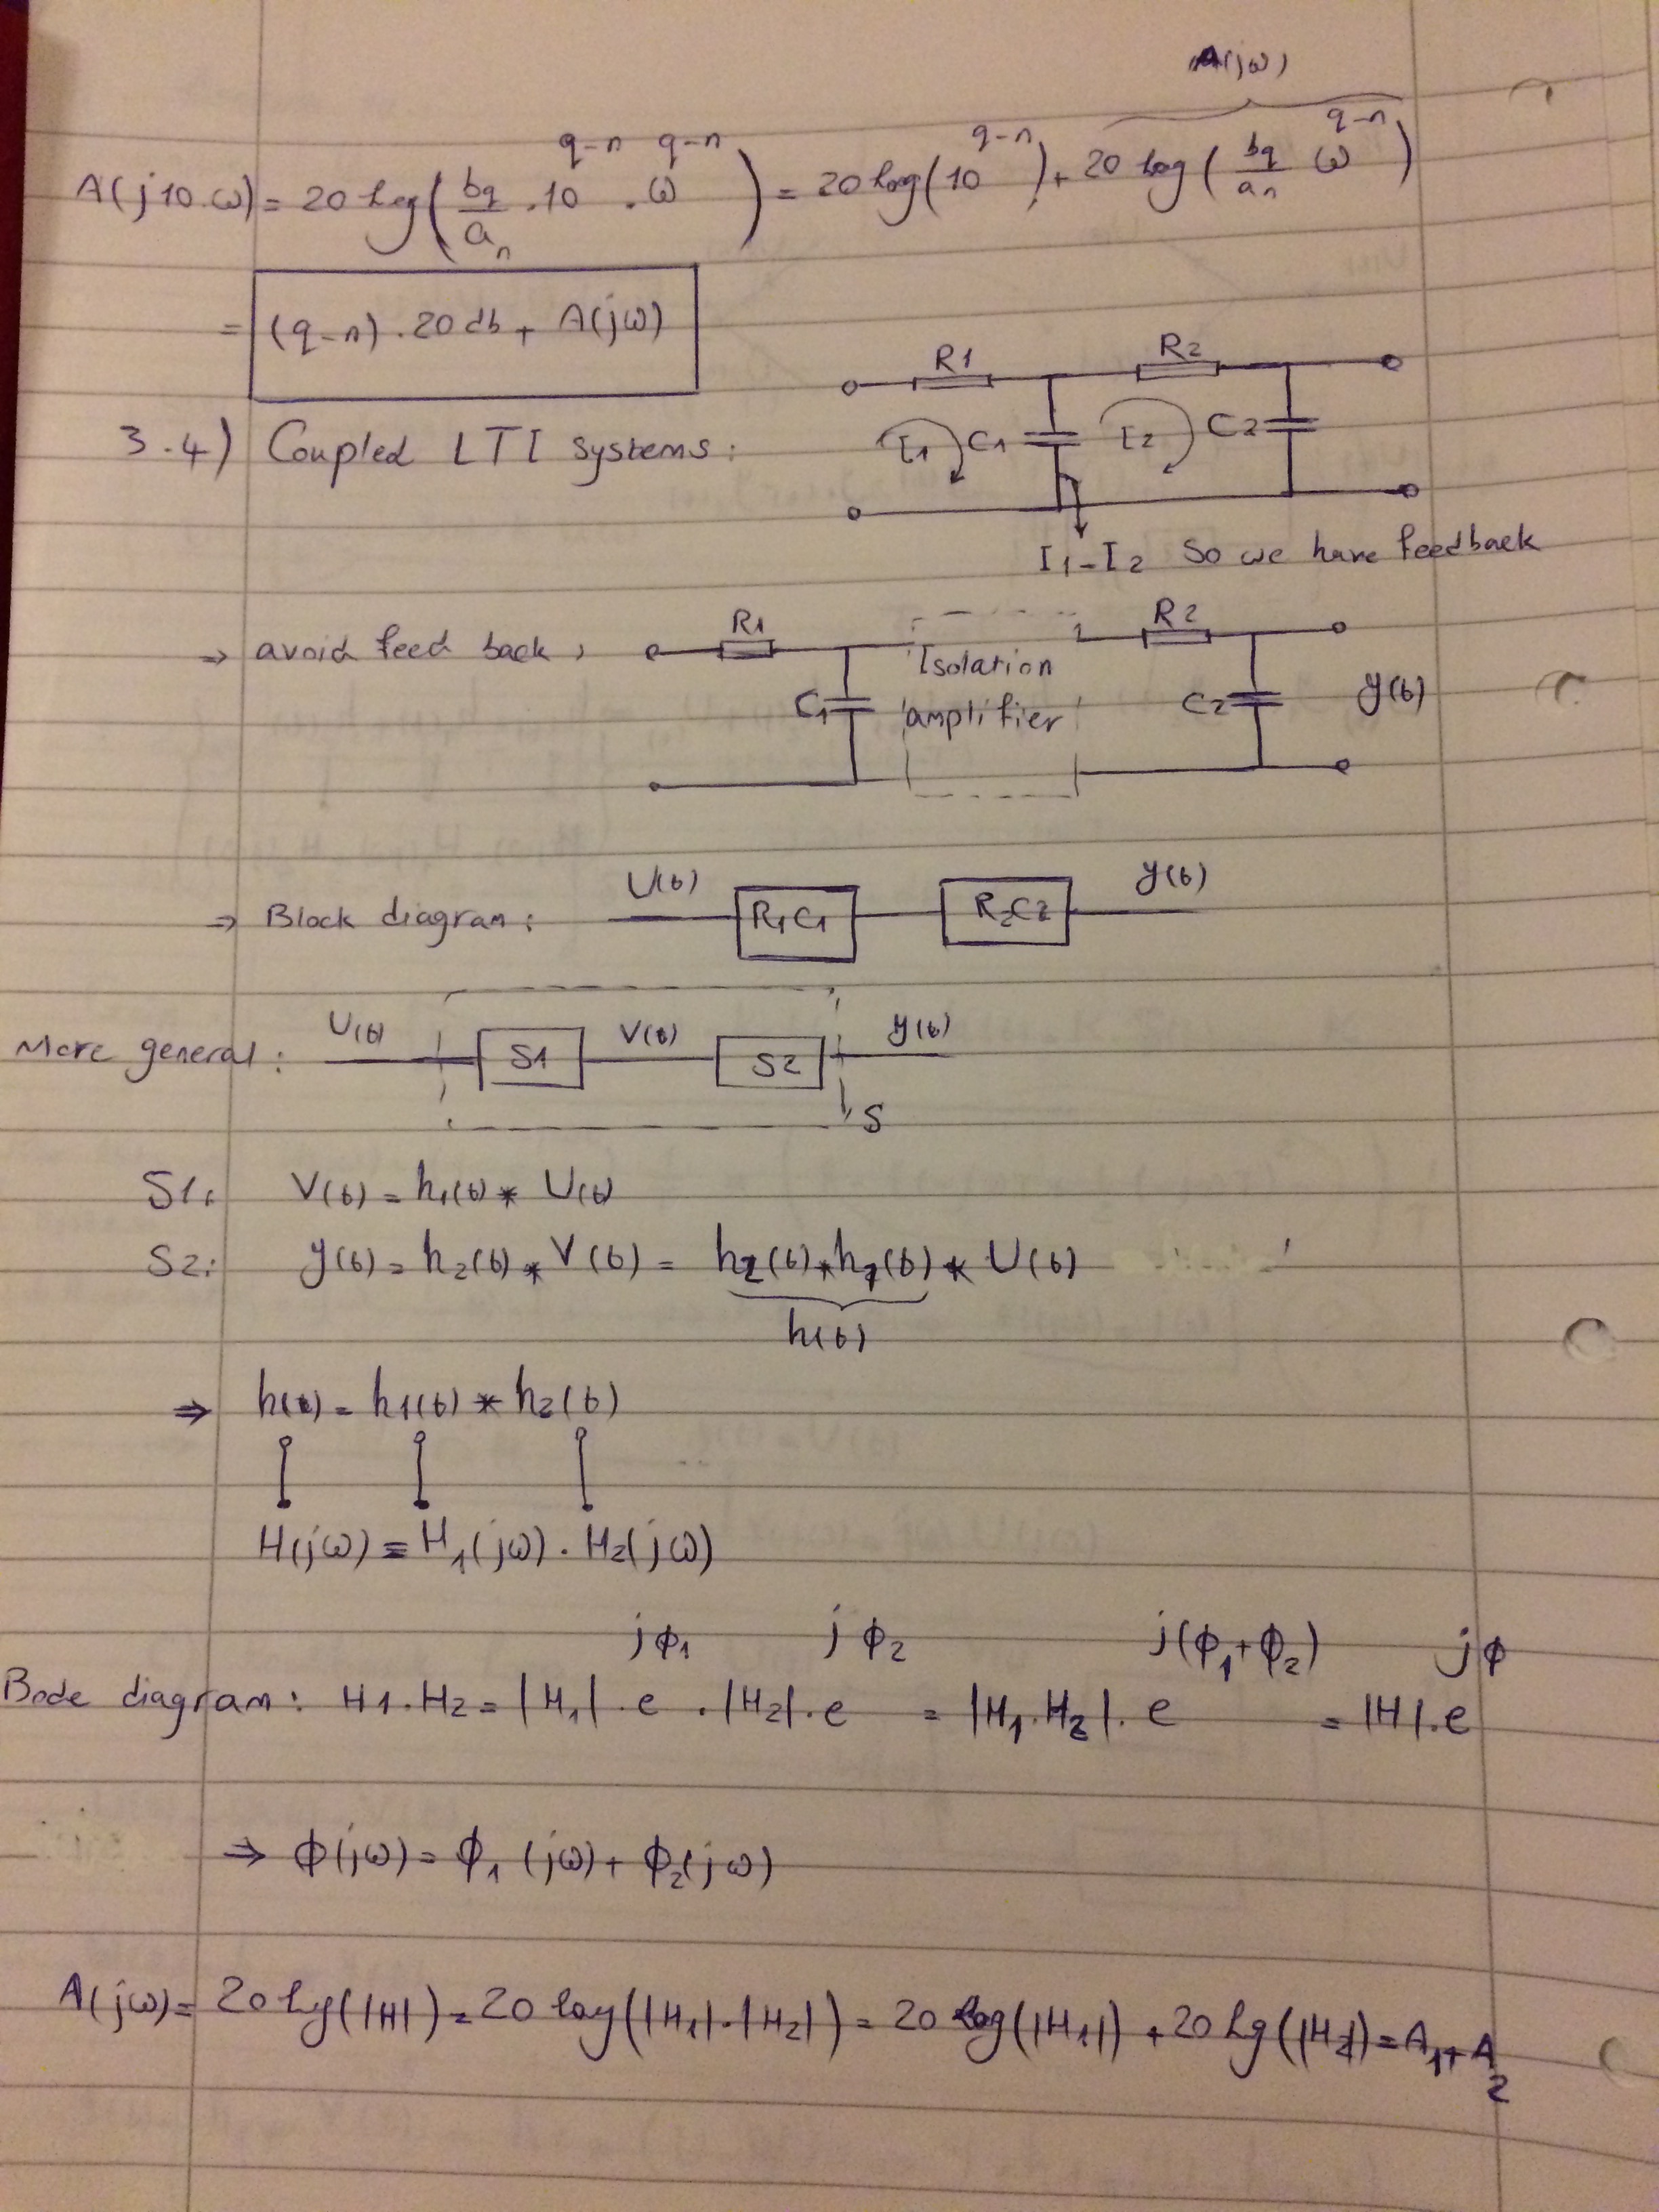 A(jω)
A(j10.ω) = 20 log( bq/an . 10^(q-n) . ω^(q-n) ) = 20 log(10^(q-n)) + 20 log( bq/an ω^(q-n) )
= (q-n) . 20 db + A(jω)
3.4) Coupled LTI systems:
R1 R2
I1 C1 I2 C2
I1-I2 So we have feedback
⇒ avoid feed back, R1 Isolation amplifier R2
C1 C2 y(t)
⇒ Block diagram: U(t) R1C1 R2C2 y(t)
More general: U(t) S1 V(t) S2 y(t)
S
S1: V(t) = h1(t) * U(t)
S2: y(t) = h2(t) * V(t) = h2(t) * h1(t) * U(t)
h(t)
⇒ h(t) = h1(t) * h2(t)
H(jω) = H1(jω) . H2(jω)
Bode diagram: H1.H2 = |H1| . e^(jϕ1) . |H2| . e^(jϕ2) = |H1.H2| . e^(j(ϕ1+ϕ2)) = |H| . e^(jϕ)
⇒ ϕ(jω) = ϕ1(jω) + ϕ2(jω)
A(jω) = 20 log(|H|) = 20 log(|H1|.|H2|) = 20 log(|H1|) + 20 log(|H2|) = A1 + A2